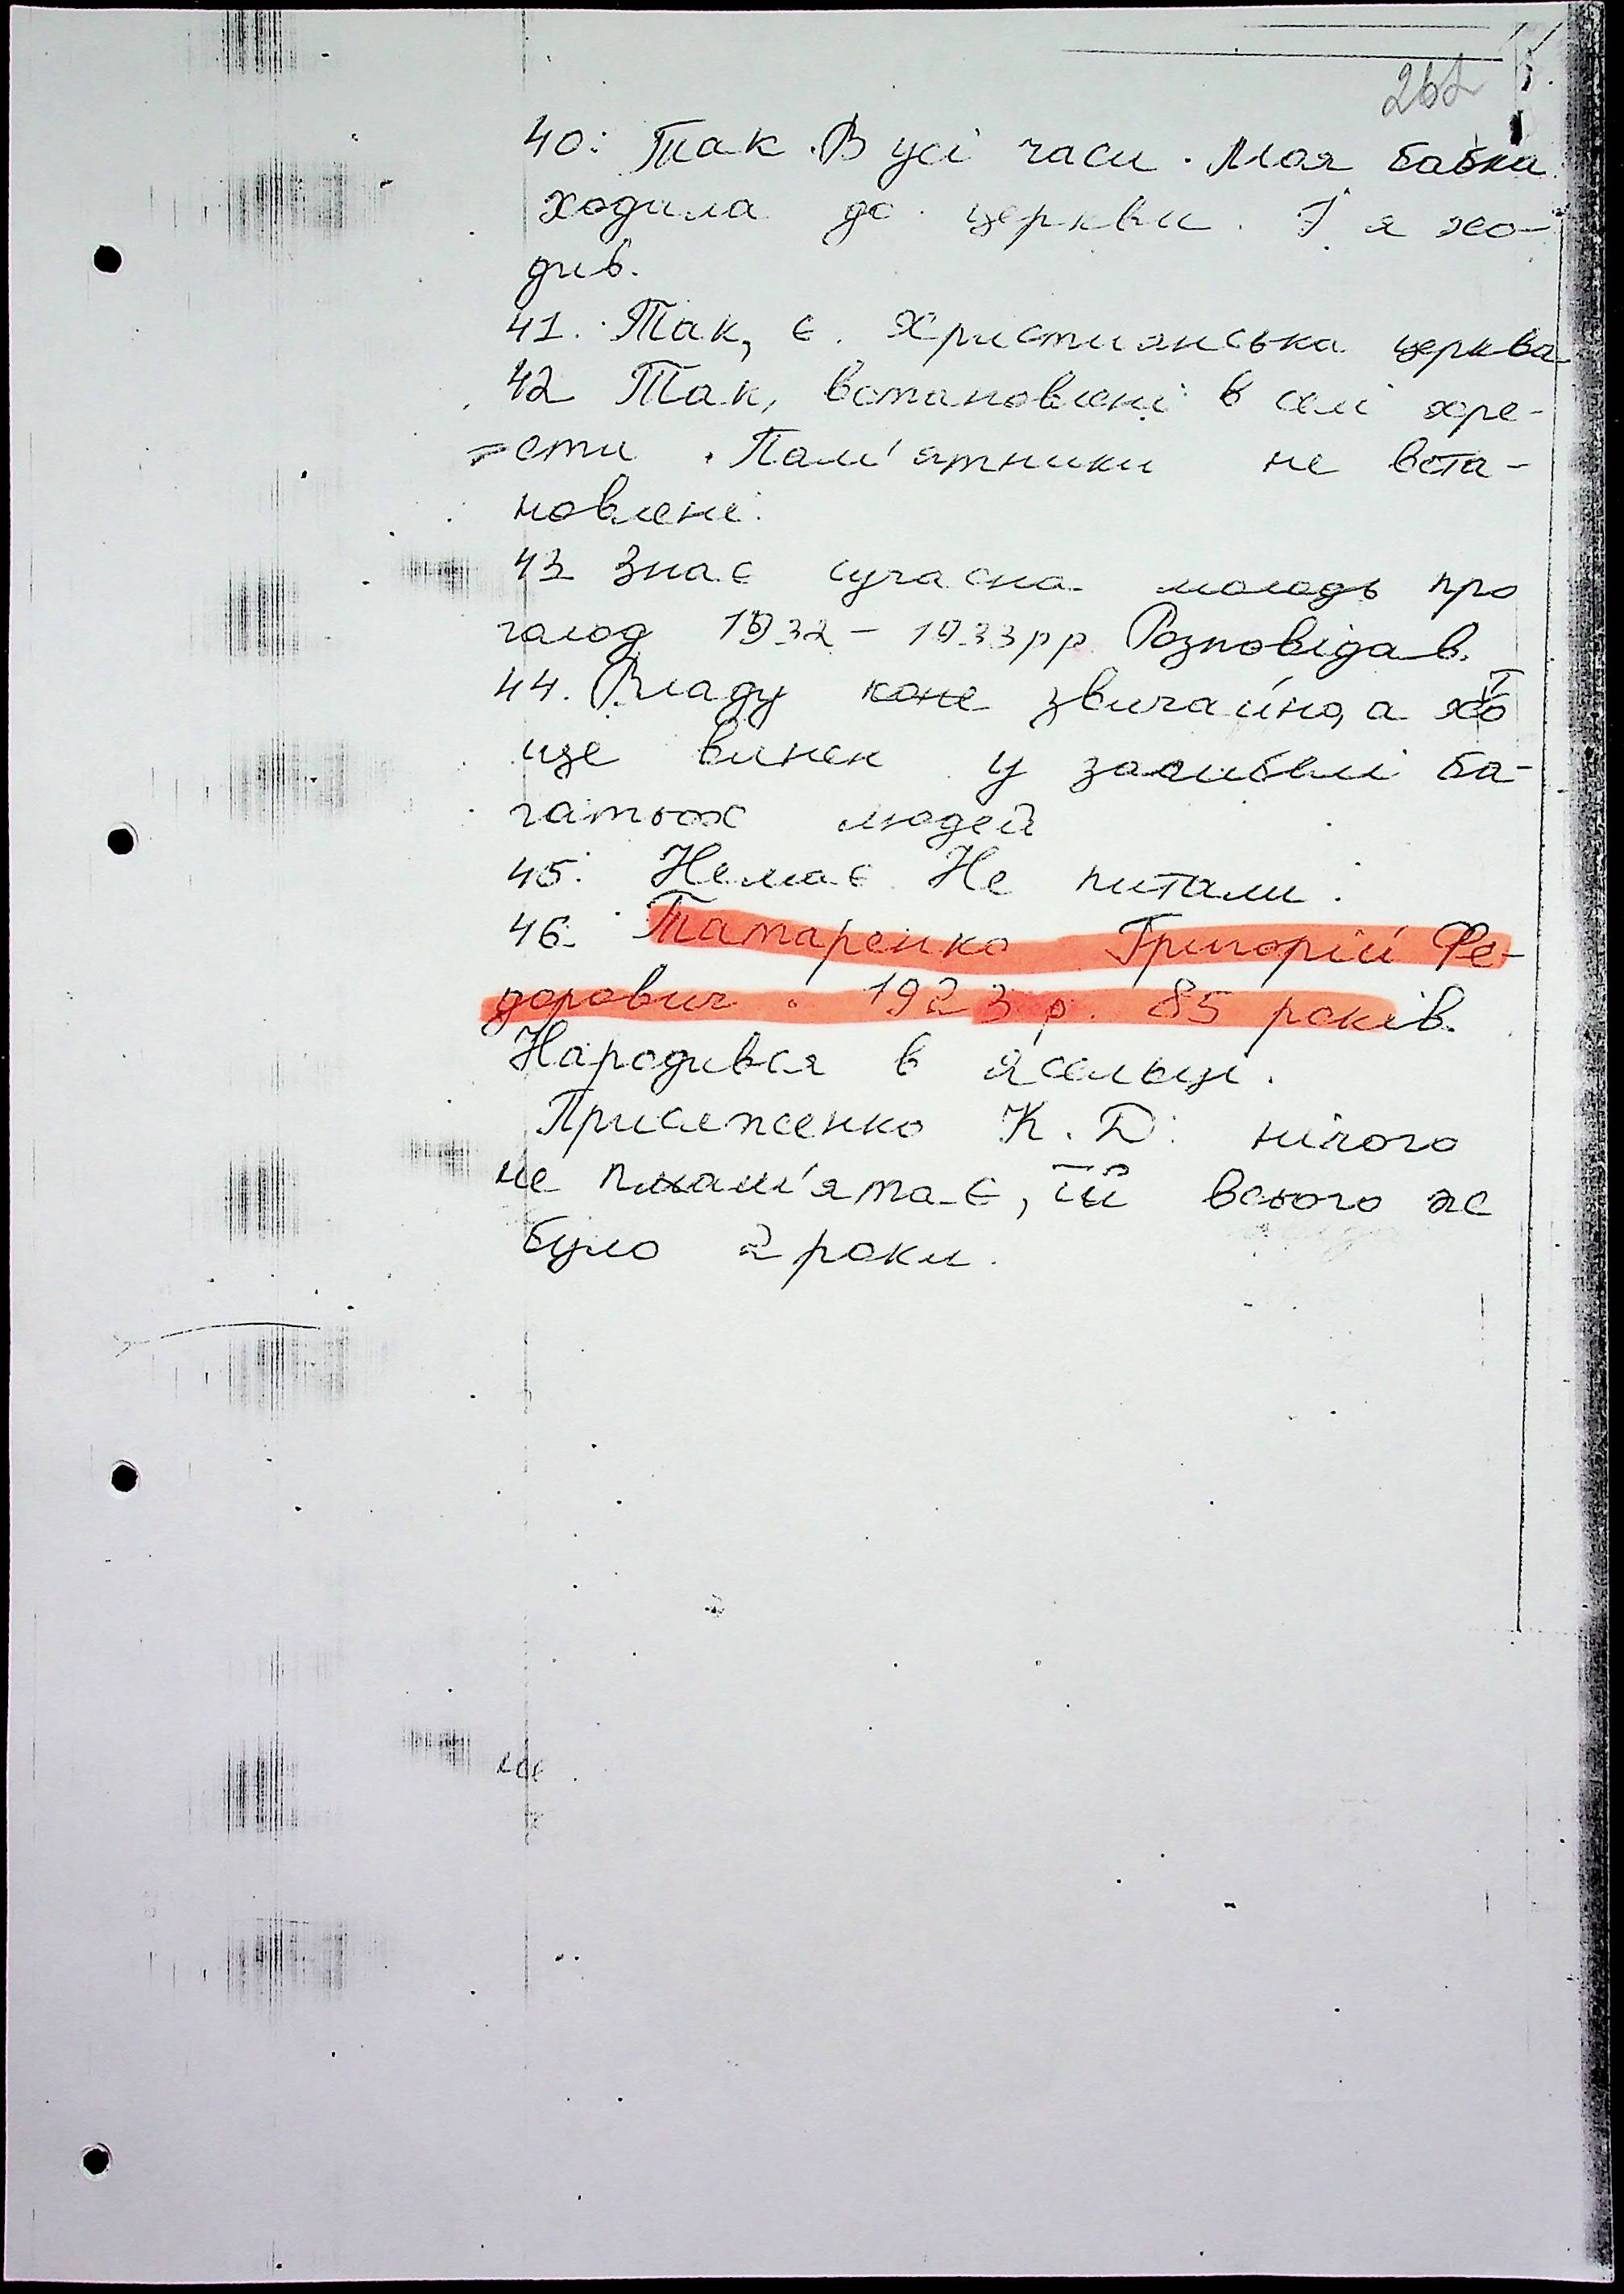 262
40: Так. В усі часи. Моя бабка
ходила до церкви. І я хо-
див.
41. Так, є. Християнська церква
42 Так, встановлені в селі хре-
сти. Пам'ятники не вста-
новлені.
43 Знає сучасна молодь про
голод 1932-1933рр Розповідав.
44. Владу коне звичайно, а хто
ще винен у загибелі ба-
гатьох людей
45. Немає. Не питали.
46. Татаренко Григорій Фе-
дорович. 1923р. 85 років.
Народився в Ясельці.
Присяженко К. Д. нічого
не пам'ятає, їй всього же
було 2 роки.